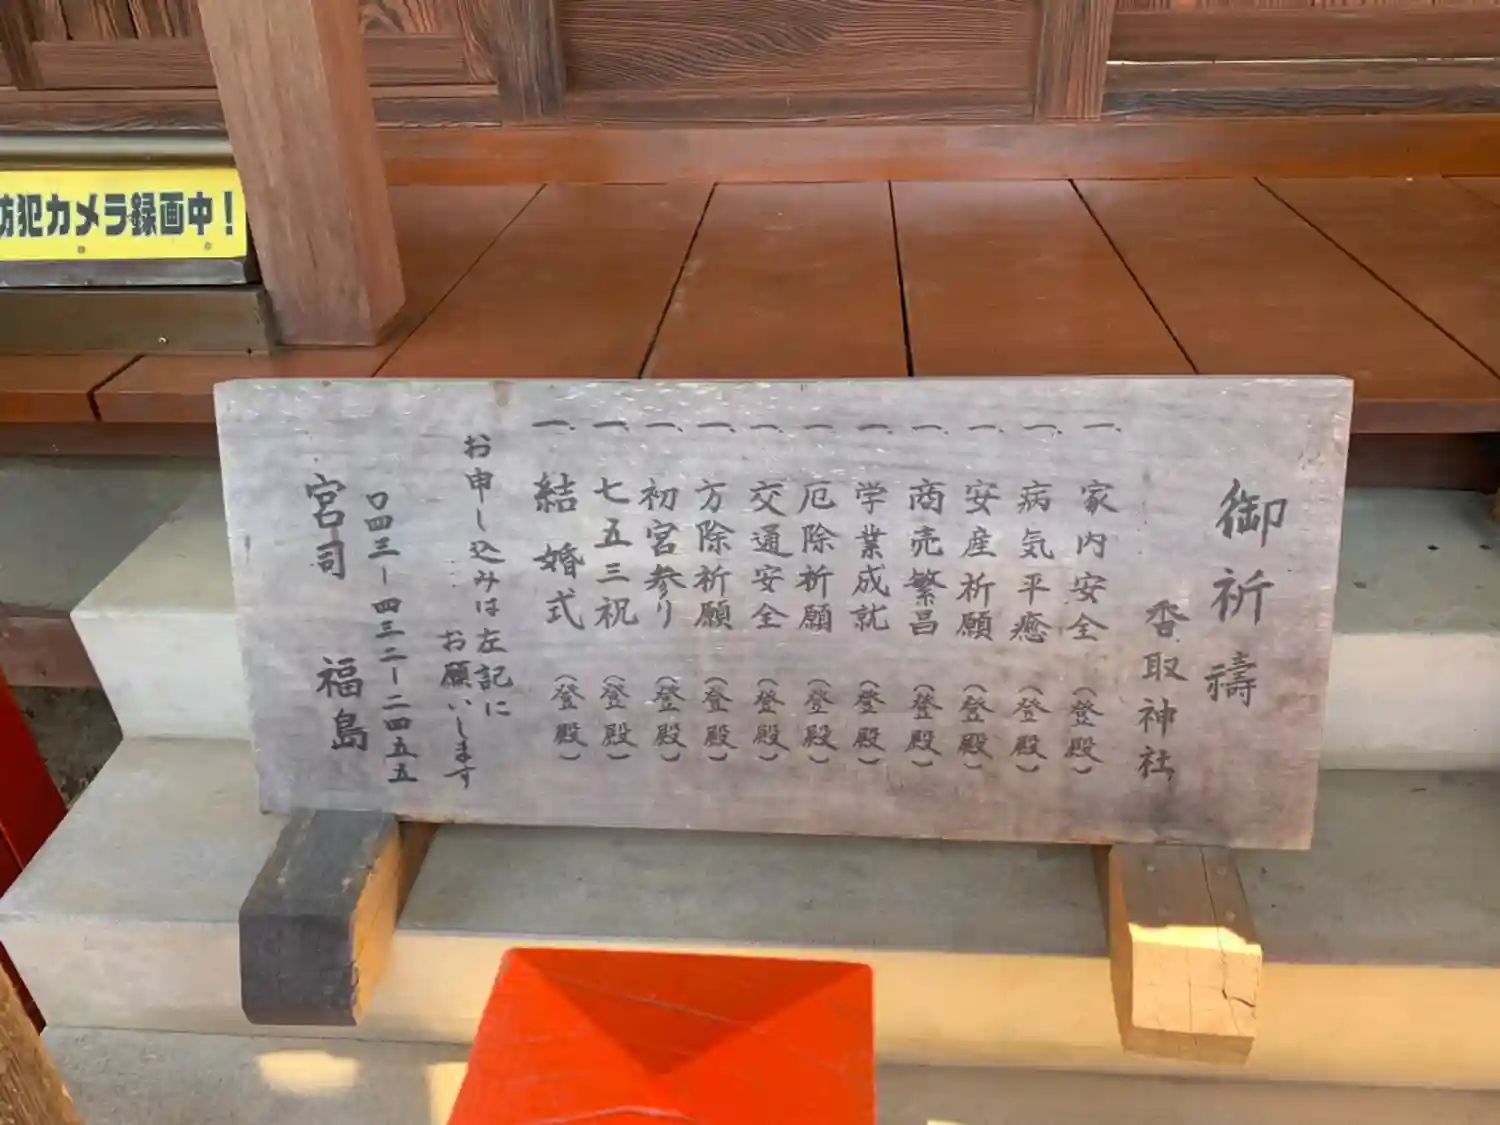 御祈禱
香取神社
一、家内安全（登殿）
一、病気平癒（登殿）
一、安産祈願（登殿）
一、商売繁昌（登殿）
一、学業成就（登殿）
一、厄除祈願（登殿）
一、交通安全（登殿）
一、方除祈願（登殿）
一、初宮参り（登殿）
一、七五三祝（登殿）
一、結婚式（登殿）
お申し込みは左記に
お願いします
〇四三ー四三二ー二四五五
宮司 福島
防犯カメラ録画中！